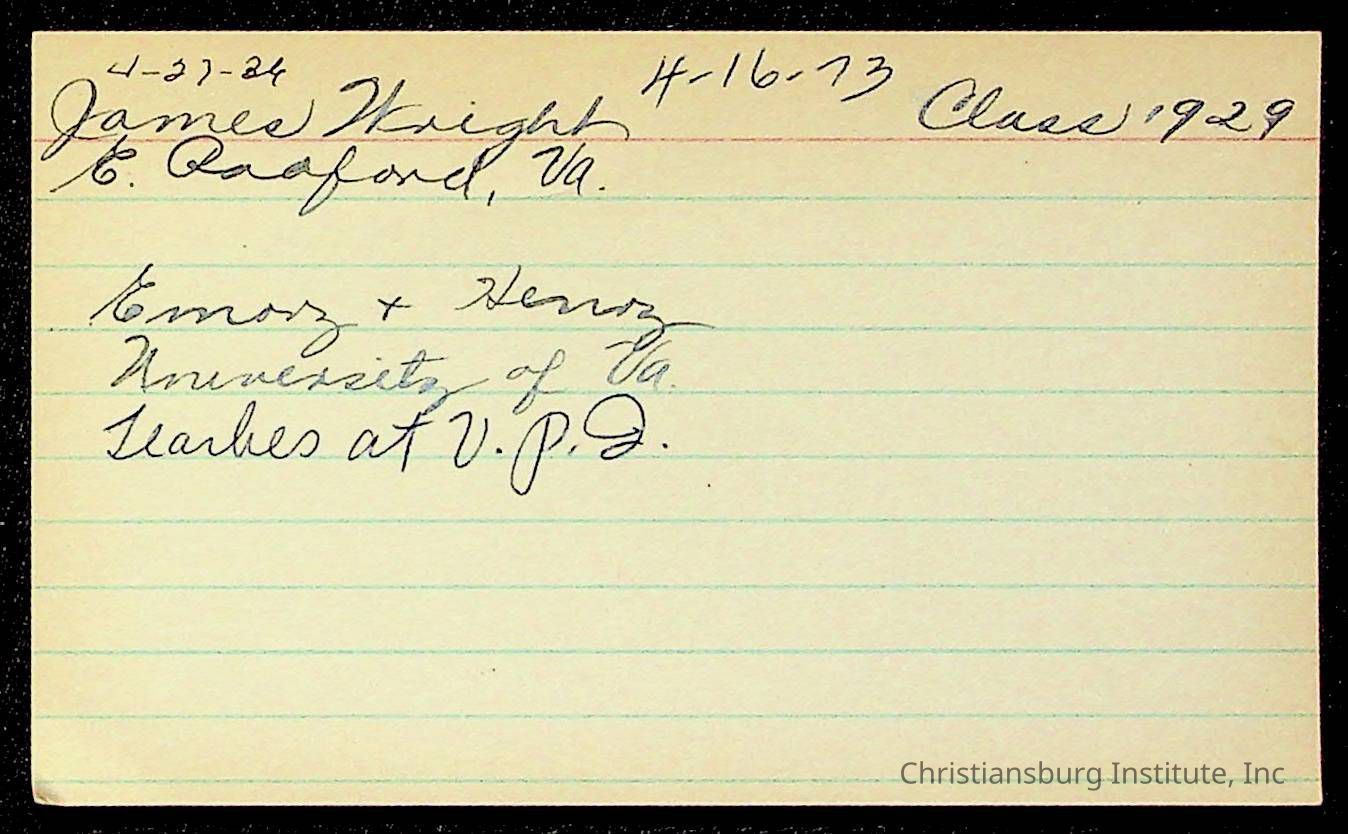 4-27-26
4-16-73
James Wright Class 1929
E. Radford, Va.
Emory + Henry
University of Va.
Teaches at V.P.I.
Christiansburg Institute, Inc